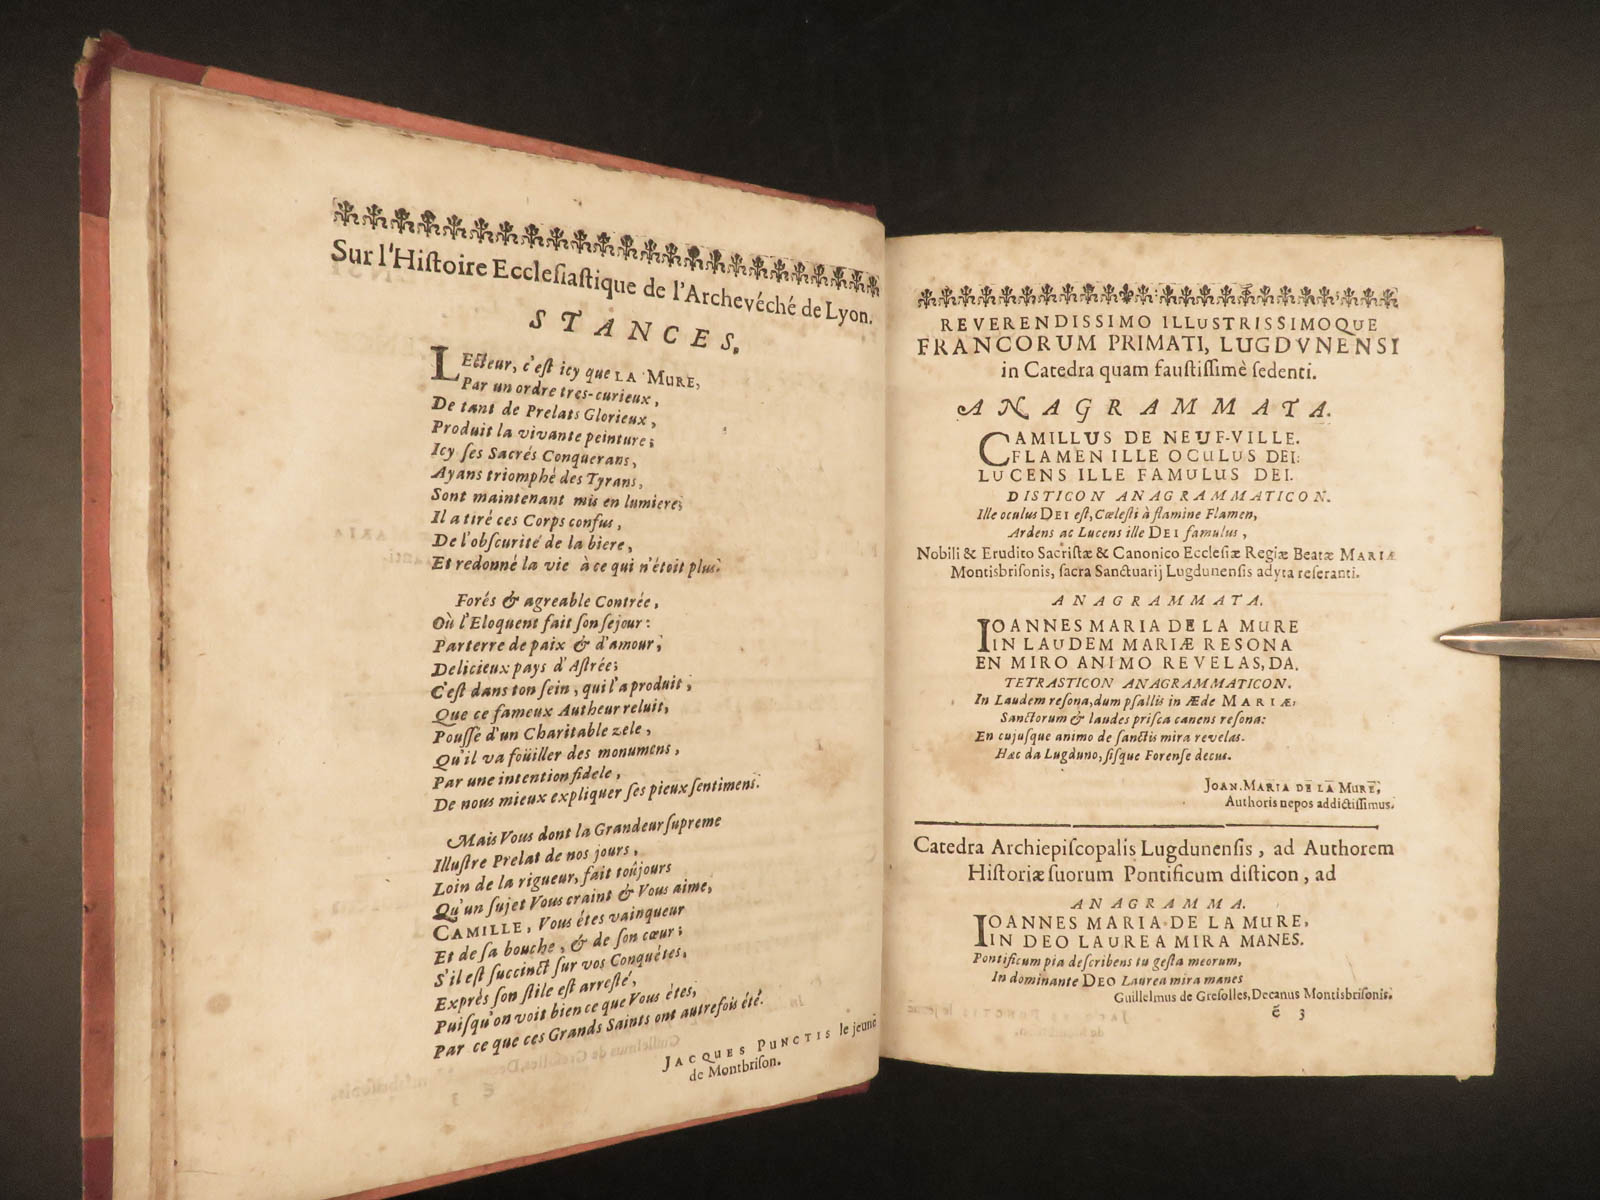 Sur l'Hiſtoire Eccleſiaſtique de l'Archevéché de Lyon.
STANCES.
LEcteur, c'eſt icy que LA MURE,
Par un ordre tres-curieux,
De tant de Prelats Glorieux,
Produit la vivante peinture;
Icy ſes Sacrés Conquerans,
Ayans triomphé des Tyrans,
Sont maintenant mis en lumiere;
Il a tiré ces Corps confus,
De l'obſcurité de la biere,
Et redonné la vie à ce qui n'étoit plus.
Forés & agreable Contrée,
Où l'Eloquent fait ſon ſejour:
Parterre de paix & d'amour;
Delicieux pays d'Aſtrée;
C'eſt dans ton ſein, qui l'a produit,
Que ce fameux Autheur reluit,
Pouſſé d'un Charitable zele,
Qu'il va foüiller des monumens,
Par une intention fidele,
De nous mieux expliquer ſes pieux ſentimens.
Mais Vous dont la Grandeur ſupreme
Illuſtre Prelat de nos jours,
Loin de la rigueur, fait toûjours
Qu'un ſujet Vous craint & Vous aime,
CAMILLE, Vous étes vainqueur
Et de ſa bouche, & de ſon cœur;
S'il eſt ſuccinct ſur vos Conquétes,
Exprés ſon ſtile eſt arreſté,
Puiſqu'on voit bien ce que Vous étes,
Par ce que ces Grands Saints ont autrefois été.
JACQUES PUNCTIS le jeune
de Montbriſon.
REVERENDISSIMO ILLUSTRISSIMOQUE
FRANCORUM PRIMATI, LUGDVNENSI
in Catedra quam fauſtiſſimè ſedenti.
ANAGRAMMATA.
CAMILLUS DE NEUF-VILLE.
FLAMEN ILLE OCULUS DEI:
LUCENS ILLE FAMULUS DEI.
DISTICON ANAGRAMMATICON.
Ille oculus DEI eſt, Cœleſti à flamine Flamen,
Ardens ac Lucens ille DEI famulus,
Nobili & Erudito Sacriſtæ & Canonico Eccleſiæ Regiæ Beatæ MARIÆ
Montisbriſonis, ſacra Sanctuarij Lugdunenſis adyta reſeranti.
ANAGRAMMATA.
IOANNES MARIA DE LA MURE
IN LAUDEM MARIÆ RESONA
EN MIRO ANIMO REVELAS, DA.
TETRASTICON ANAGRAMMATICON.
In Laudem reſona, dum pſallis in Æde MARIÆ,
Sanctorum & laudes priſca canens reſona:
En cujuſque animo de ſanctis mira revelas.
Hæc da Lugduno, ſiſque Forenſe decus.
JOAN. MARIA DE LA MURE,
Authoris nepos addictiſſimus.
Catedra Archiepiſcopalis Lugdunenſis, ad Authorem
Hiſtoriæ ſuorum Pontificum diſticon, ad
ANAGRAMMA.
IOANNES MARIA DE LA MURE,
IN DEO LAUREA MIRA MANES.
Pontificum pia deſcribens tu geſta meorum,
In dominante DEO Laurea mira manes
Guillelmus de Greſolles, Decanus Montisbriſonis.
ẽ 3